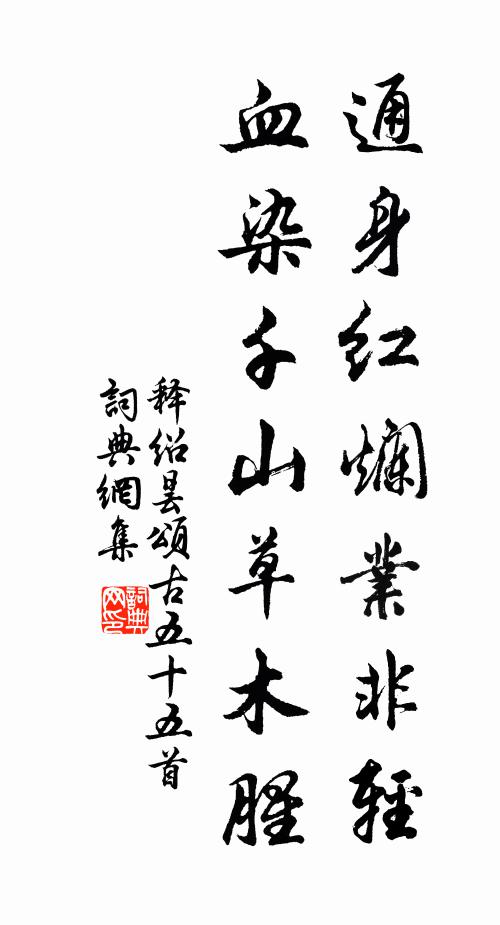 通身红爛業非輕
血染千山草木腥
释绍昙頌古五十五首
詞典網集
詞典网印